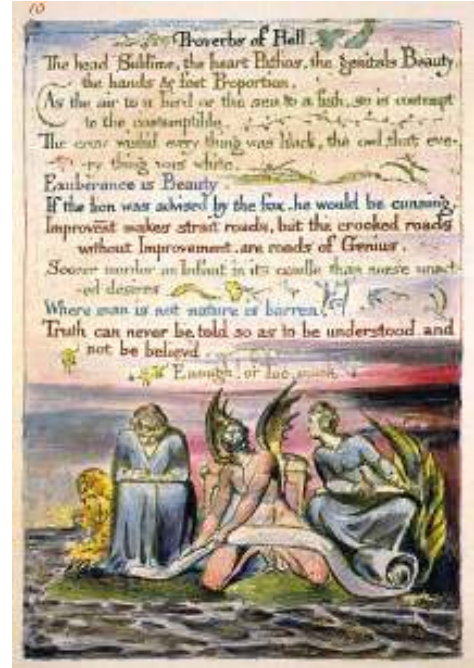 10
Proverbs of Hell.
The head Sublime, the heart Pathos, the genitals Beauty
the hands & feet Proportion.
As the air to a bird or the sea to a fish, so is contempt
to the contemptible.
The crow wish'd every thing was black, the owl, that eve-
-ry thing was white.
Exuberance is Beauty.
If the lion was advised by the fox. he would be cunning.
Improvent makes strait roads, but the crooked roads
without Improvement, are roads of Genius.
Sooner murder an Infant in its cradle than nurse unact-
-ed desires
Where man is not nature is barren.
Truth can never be told so as to be understood, and
not be believ'd.
Enough! or Too much